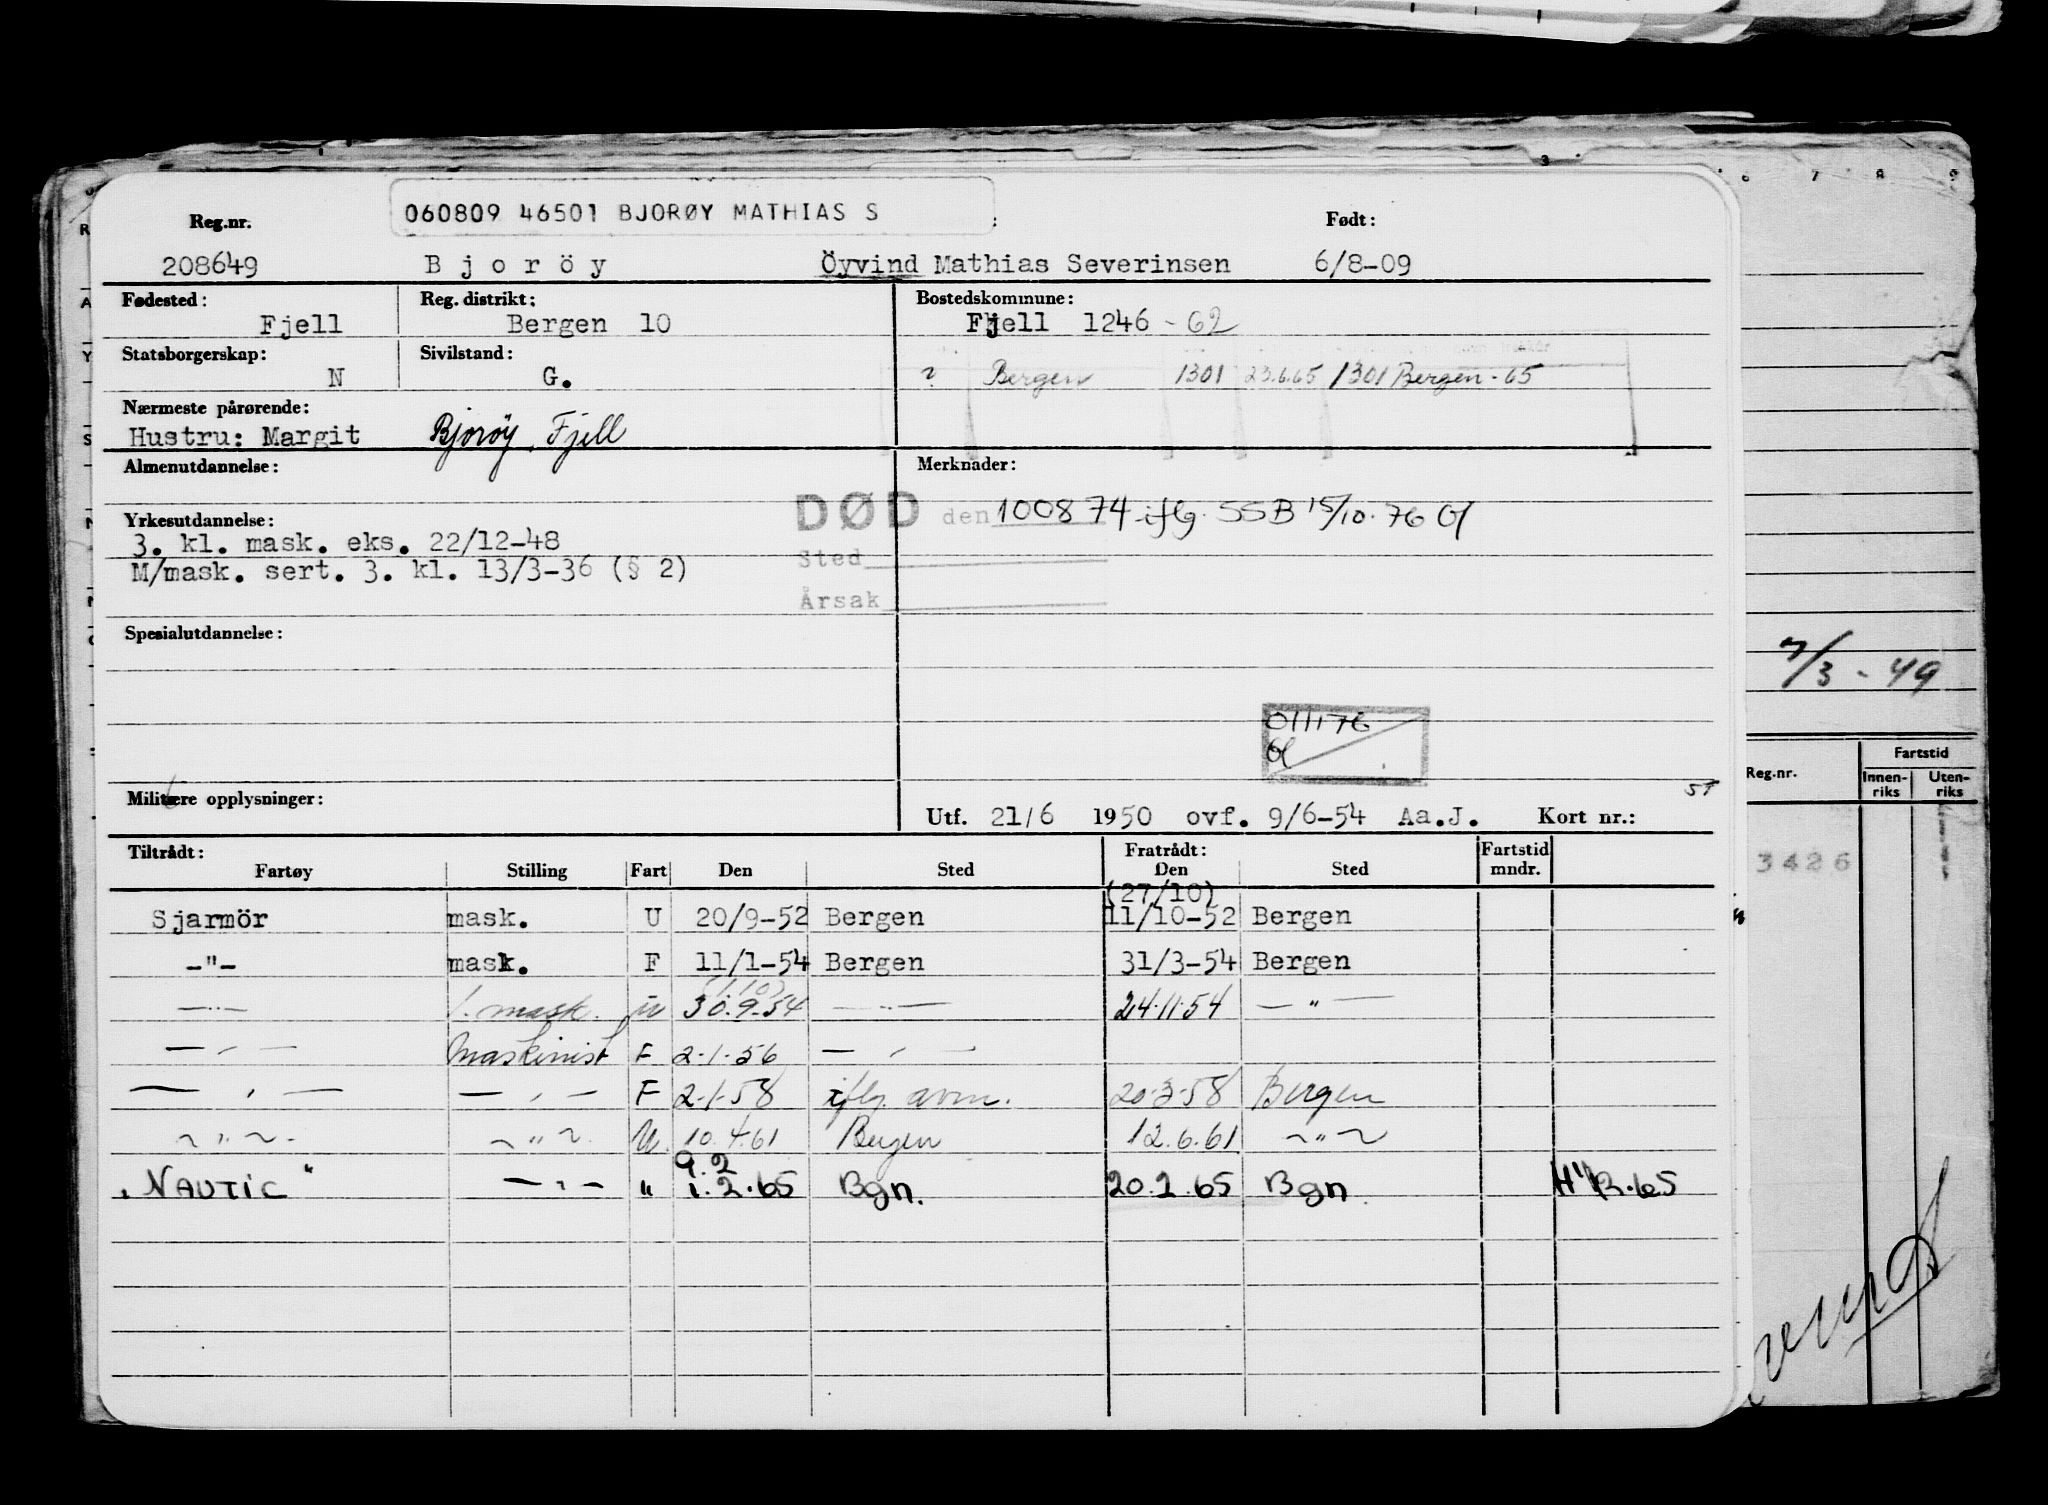 Reg.nr. 060809 46501 BJORØY MATHIAS S : Født:
208649 Bjoröy Öyvind Mathias Severinsen 6/8-09
Fødested: Reg. distrikt: Bostedskommune:
Fjell Bergen 10 Fjell 1246 - 62
Statsborgerskap: Sivilstand:
N G. ? Bergen 1301 23.6.65 1301 Bergen - 65
Nærmeste pårørende:
Hustru: Margit Bjoröy, Fjell
Almenutdannelse: Merknader:
DØD den 100874 iflg. SSB 15/10.76
Yrkesutdannelse:
3. kl. mask. eks. 22/12-48
Sted
M/mask. sert. 3. kl. 13/3-36 (§ 2)
Årsak
Spesialutdannelse:
7/3 - 49
011176
Militære opplysninger:
Utf. 21/6 1950 ovf. 9/6-54 Aa.J. Kort nr.:
Reg.nr. Fartstid
Innen-riks Uten-riks
3426
Tiltrådt: Fratrådt: Fartstid
Fartøy Stilling Fart Den Sted Den Sted mndr.
(27/10)
Sjarmör mask. U 20/9-52 Bergen 11/10-52 Bergen
-"- mask. F 11/1-54 Bergen 31/3-54 Bergen
(1/10)
—"— 1. mask. U 30.9.54 —"— 24.11.54 —"—
—"— Maskinist F 2.1.56 —"—
—"— —"— F 2.1.58 iflg. avm. 20.3.58 Bergen
—"— —"— U. 10.4.61 Bergen 12.6.61 —"—
9.2
"NAUTIC" —"— " 1.2.65 Bgn. 20.2.65 Bgn.